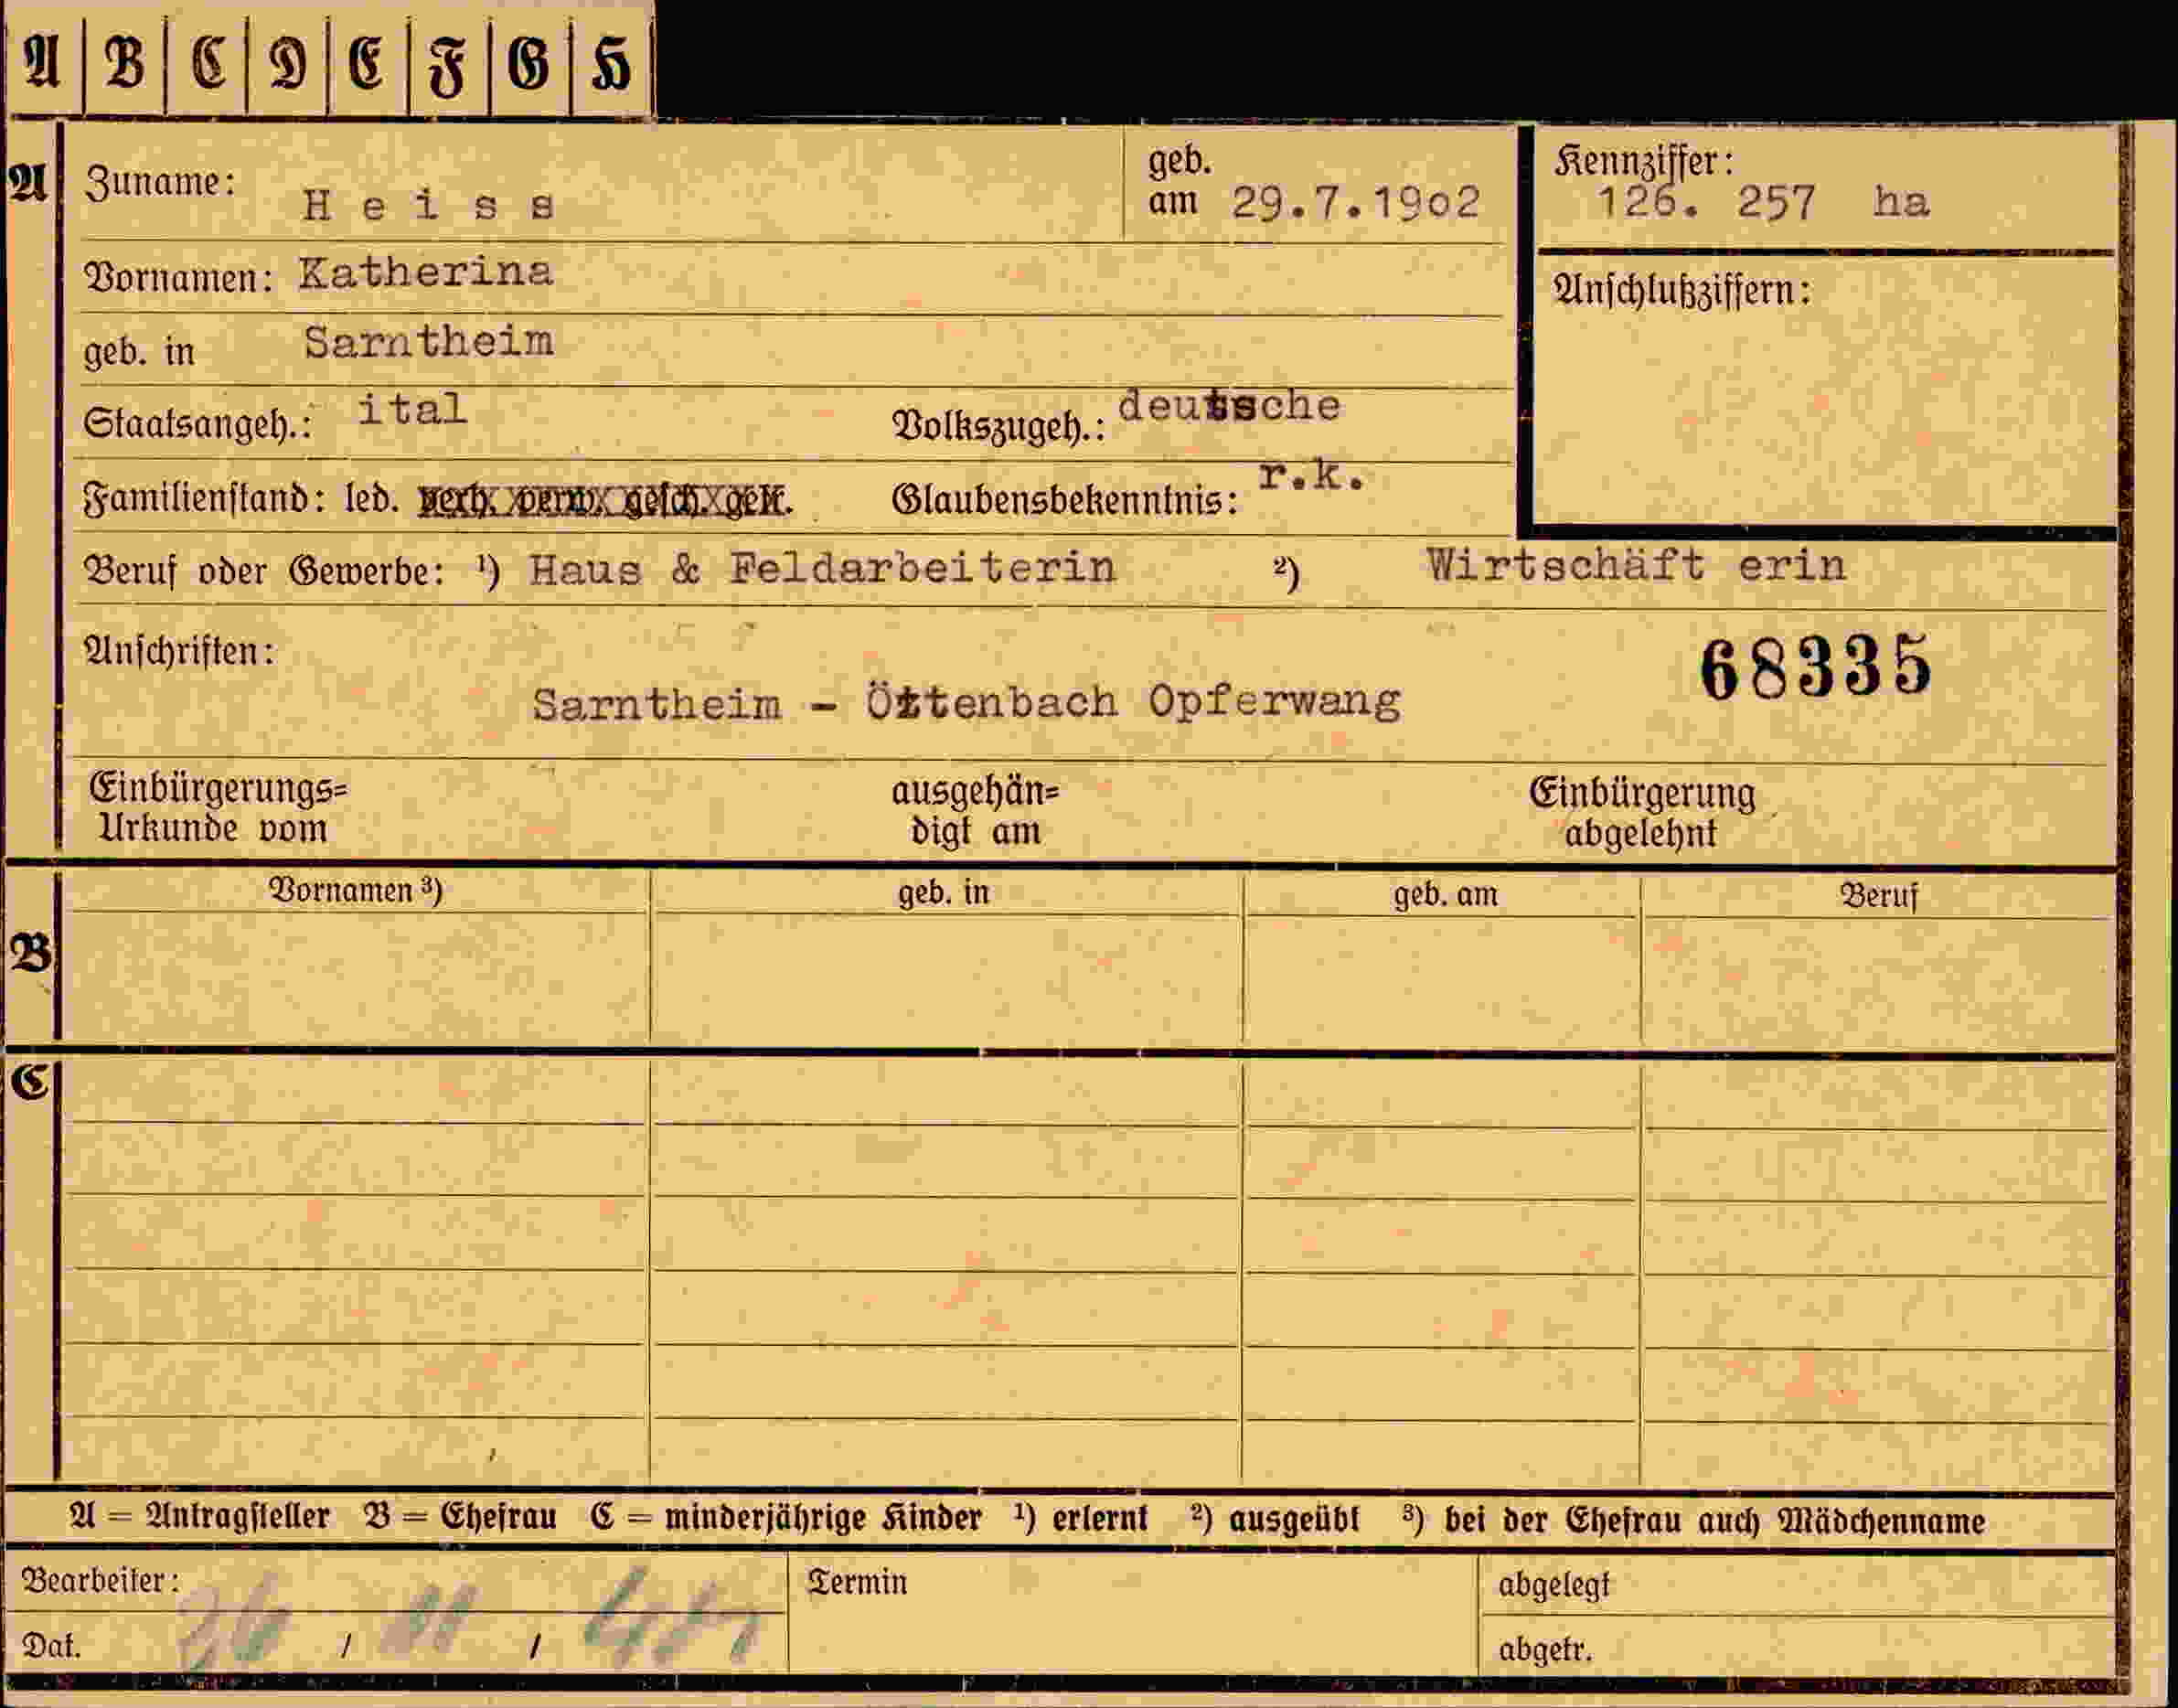 A B C D E F G H
A Zuname: Heiss geb. am 29.7.1902 Kennziffer: 126. 257 ha
Vornamen: Katherina Anschlußziffern:
geb. in Sarntheim
Staatsangeh.: ital Volkszugeh.: deutsche
Familienstand: led. verh. verw. gesch. getr. Glaubensbekenntnis: r.k.
Beruf oder Gewerbe: ¹) Haus & Feldarbeiterin ²) Wirtschäft erin
Anschriften: 68335
Sarntheim - Öttenbach Opferwang
Einbürgerungs= ausgehän= Einbürgerung
Urkunde vom digt am abgelehnt
Vornamen ³) geb. in geb. am Beruf
B
C
A = Antragsteller B = Ehefrau C = minderjährige Kinder ¹) erlernt ²) ausgeübt ³) bei der Ehefrau auch Mädchenname
Bearbeiter: Termin abgelegt
Dat. / / abgetr.